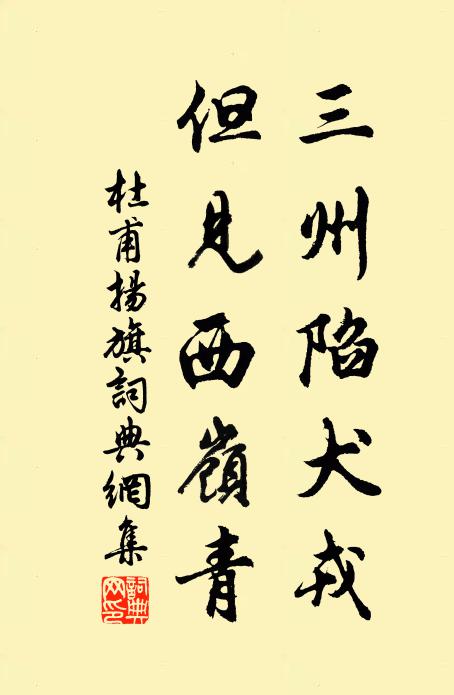 三州陷犬戎
但見西嶺青
杜甫揚旗詞典網集
詞典
网印